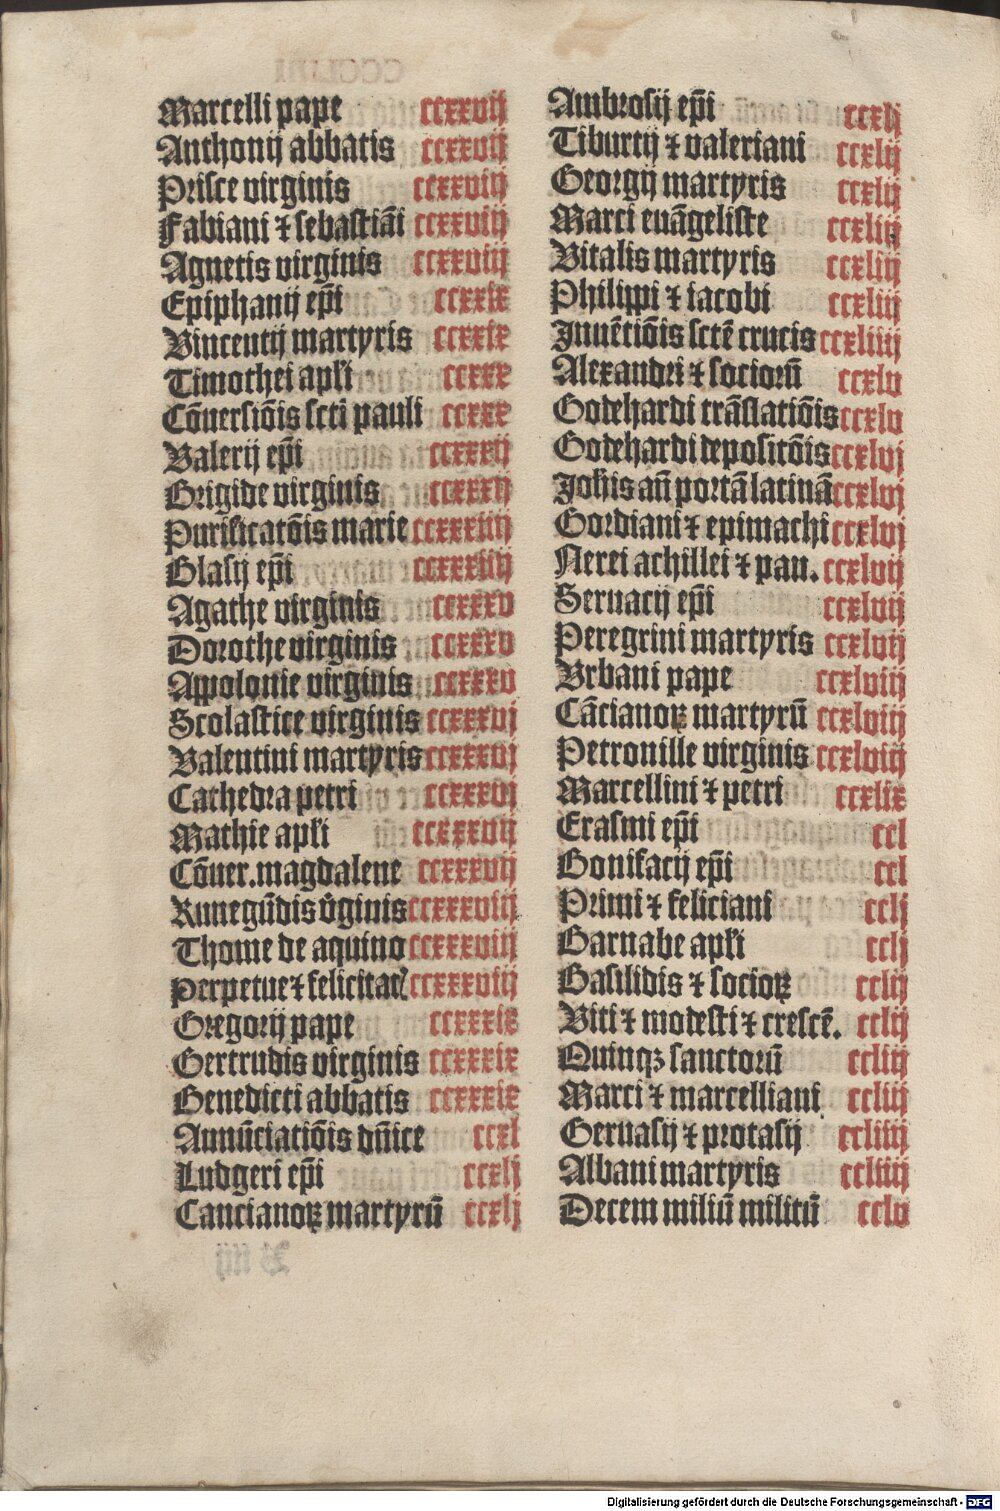 Marcelli pape ccxxvij
Anthonij abbatis ccxxvij
Prisce virginis ccxxviij
Fabiani ⁊ sebastiāi ccxxviij
Agnetis virginis ccxxviij
Epiphanij ep̄i ccxxix
Vincentij martyris ccxxix
Timothei apl'i ccxxx
Cōuersiōis scti pauli ccxxx
Valerij ep̄i ccxxxij
Brigide virginis ccxxxij
Purificatōis marie ccxxxiiij
Blasij ep̄i ccxxxiiij
Agathe virginis ccxxxv
Dorothe virginis ccxxxv
Appolonie virginis ccxxxv
Scolastice virginis ccxxxvj
Valentini martyris ccxxxvj
Cathedra petri ccxxxvj
Mathie apl'i ccxxxvij
Cōuer. magdalene ccxxxvij
Kunegūdis v̄ginis ccxxxviij
Thome de aquino ccxxxviij
Perpetue ⁊ felicitat ccxxxviij
Gregorij pape ccxxxix
Gertrudis virginis ccxxxix
Benedicti abbatis ccxxxix
Annūciatiōis dn̄ice ccxl
Ludgeri ep̄i ccxlj
Cancianoꝝ martyrū ccxlj
Ambrosij ep̄i ccxlj
Tiburtij ⁊ valeriani ccxlij
Georgij martyris ccxlij
Marci euāgeliste ccxliij
Vitalis martyris ccxliij
Philippi ⁊ iacobi ccxliij
Inuētiōis sctē crucis ccxliiij
Alexandri ⁊ sociorū ccxlv
Godehardi trāslatiōis ccxlv
Godehardi depositōis ccxlvj
Joh̄is an̄ portā latinā ccxlvj
Gordiani ⁊ epimachi ccxlvj
Nerei achillei ⁊ pan. ccxlvij
Seruacij ep̄i ccxlvij
Peregrini martyris ccxlvij
Vrbani pape ccxlviij
Cācianoꝝ martyrū ccxlviij
Petronille virginis ccxlviij
Marcellini ⁊ petri ccxlix
Erasmi ep̄i ccl
Bonifacij ep̄i ccl
Primi ⁊ feliciani cclj
Barnabe apl'i cclj
Basilidis ⁊ socioꝝ cclij
Viti ⁊ modesti ⁊ crescē. cclij
Quinqꝫ sanctorū ccliij
Marci ⁊ marcelliani ccliij
Geruasij ⁊ protasij ccliiij
Albani martyris ccliiij
Decem miliū militū cclv
Digitalisierung gefördert durch die Deutsche Forschungsgemeinschaft - DFG